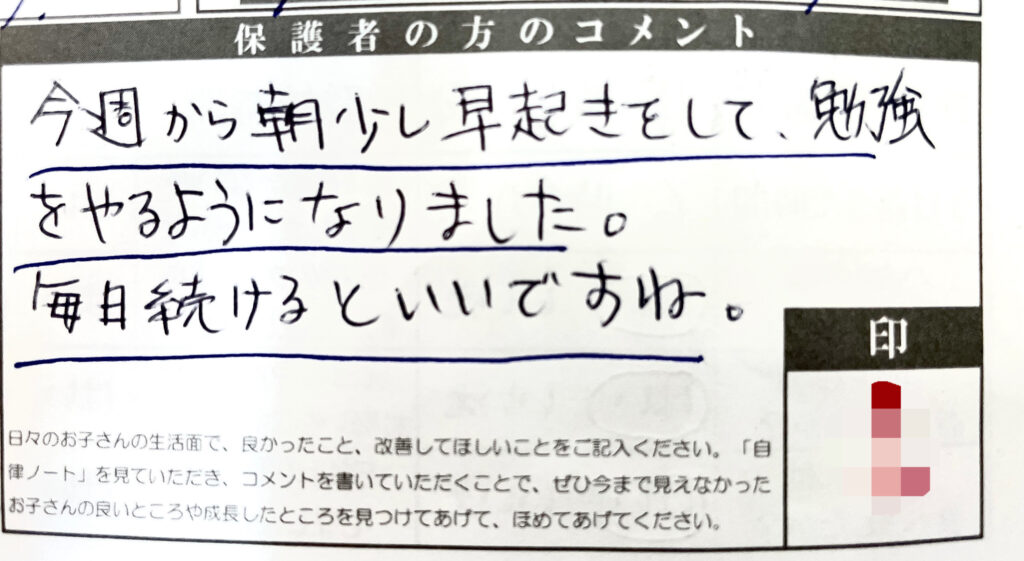 保護者の方のコメント
今週から朝少し早起きをして、勉強
をやるようになりました。
毎日続けるといいですね。
印
日々のお子さんの生活面で、良かったこと、改善してほしいことをご記入ください。「自
律ノート」を見ていただき、コメントを書いていただくことで、ぜひ今まで見えなかった
お子さんの良いところや成長したところを見つけてあげて、ほめてあげてください。